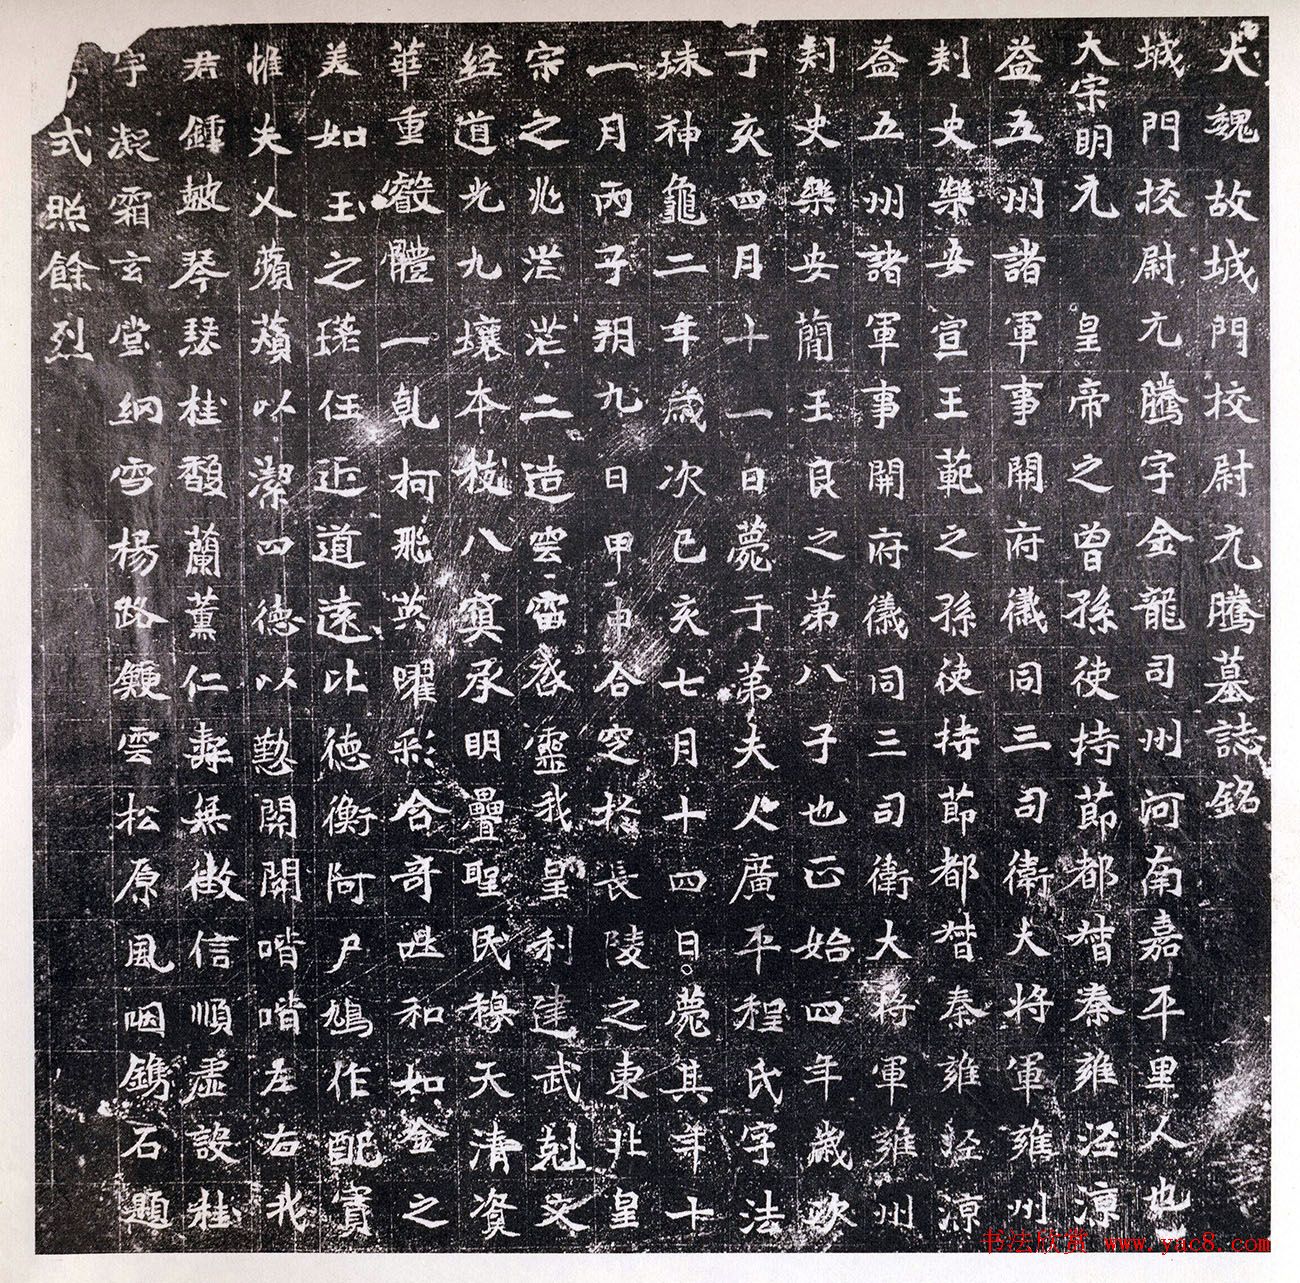 大魏故城門校尉元騰墓誌銘
城門校尉元騰字金龍司州河南嘉平里人也
大宗明元 皇帝之曾孫使持節都督秦雍涇涼
益五州諸軍事開府儀同三司衛大將軍雍州
刺史樂安宣王範之孫使持節都督秦雍涇涼
益五州諸軍事開府儀同三司衛大將軍雍州
刺史樂安簡王良之第八子也正始四年歲次
丁亥四月十一日薨于第夫人廣平程氏字法
珠神龜二年歲次己亥七月十四日薨其年十
一月丙子朔九日甲申合窆於長陵之東北皇
宗之兆茫茫二造雲雷感靈我皇利建武剋文
經道光九壤本枝八寅承明疊聖民穆天清資
華重叡體一乹柯飛英曜彩含奇挺和如金之
美如玉之瑳任近道遠比德衡阿尸鳩作配實
惟夫人蘋蘩以潔四德以懃關關喈喈左右我
君鍾鼓琴瑟桂馥蘭薰仁壽無徵信順虛設桂
宇凝霜玄堂網雪楊路雲松原風咽鐫石題
式照餘烈
书法欣赏 www.yac8.com